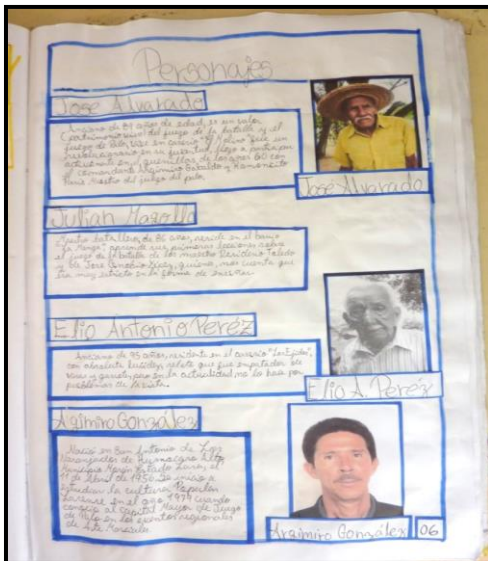 Personajes
José Alvarado
Anciano de 89 años de edad, es un valor
(patrimonio vivo) del juego de la batalla y el
juego de Palo, vive en caserio "El Molino" fue un
en su juventud, llego a participar
activamente en guerrillas de los años 60 con
el comandante Argimiro Gabaldon y
Maestro del juego del palo
José Alvarado
Julian
batallero, de 86 años, reside en el barrio
aprende sus primeras lecciones sobre
el juego de la batalla de los maestro Toledo
y de José quienes, nos cuenta que
era muy estricto en la forma de enseñar.
Elio Antonio Peréz
Anciano de 95 años, residente en el caserio
con absoluta lucidez, relata que fue de
y garrote, pero en la actualidad, no lo hace por
problemas de la vista.
Elio A. Peréz
Argimiro González
Nació en San Antonio de Los
Naranjados de Humocaro Alto
Municipio Morán Estado Lara, el
11 de Abril de 1956. Se inicio a
estudiar la cultura Popular
Larense en el año 1979 cuando
conoció al Capital Mayor de Juego
de Palo en los eventos regionales
de Arte
Argimiro González
06